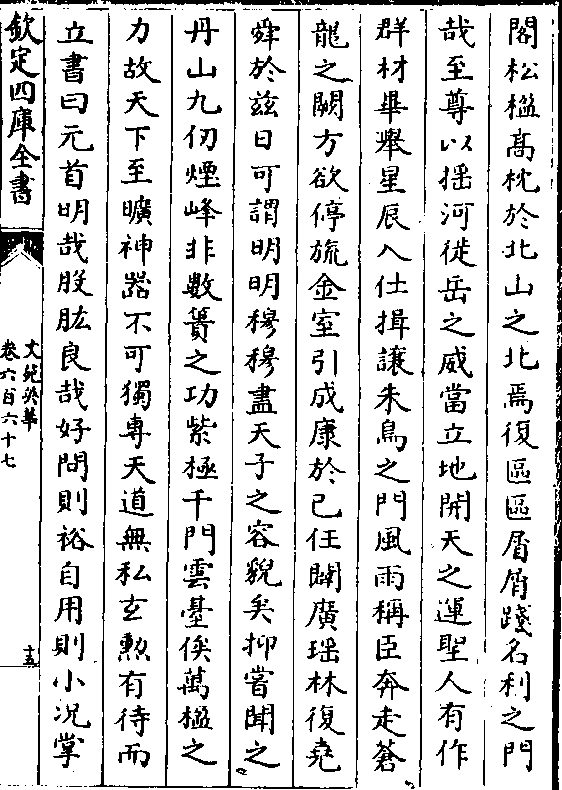 閣松檻髙枕於北山之北焉復區區屑屑踐名利之門
哉至尊以揺河徙岳之威當立地開天之運聖人有作
群材畢舉星辰入仕揖讓朱鳥之門風雨稱臣奔走蒼
龍之闕方欲停旒金室引成康於已任闢廣瑶林復堯
舜於兹日可謂明明穆穆盡天子之容貌矣抑嘗聞之
丹山九仞煙峰非數簣之功紫極千門雲臺俟萬楹之
力故天下至曠神器不可獨專天道無私玄勲有待而
立書曰元首明哉股肱良哉好問則裕自用則小况掌
欽定四庫全書
文苑英華
卷六百六十七
十五